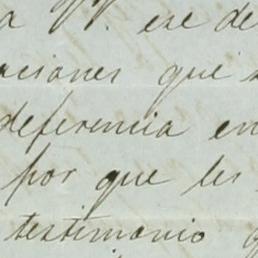 a VV. ese de
aciones que
deferencia en
por que les
testimonio q